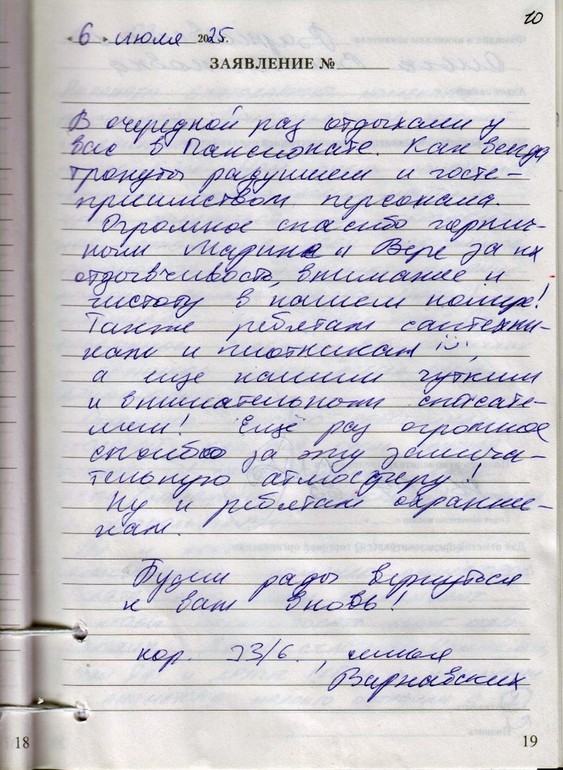 10
« 6 » июля 2025г.
ЗАЯВЛЕНИЕ №
В очередной раз отдыхали у
вас в Пансионате. Как всегда
тронуты радушием и госте-
приимством персонала.
Огромное спасибо гornич-
ным Марине и Вере за их
отзывчивость, внимание и
чистоту в нашем номере!
Также ребятам сантехни-
кам и плотникам !
а еще нашим чутким
и внимательным спасате-
лям! Ещё раз огромное
спасибо за эту замеча-
тельную атмосферу!
Ну и ребятам охранни-
кам.
Будем рады вернуться
к вам вновь!
кор. 23/6., семья
Варнавских
18
19